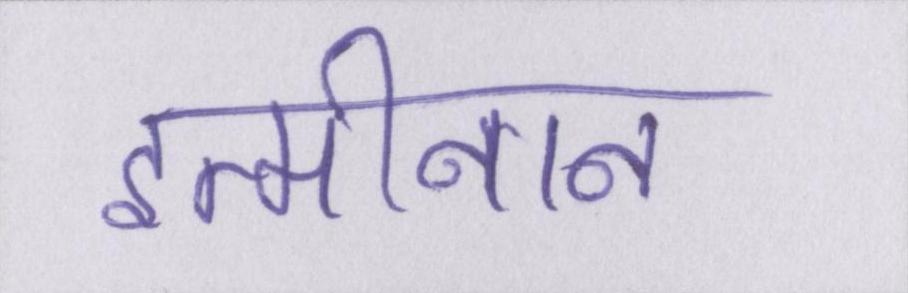 इत्मीनान